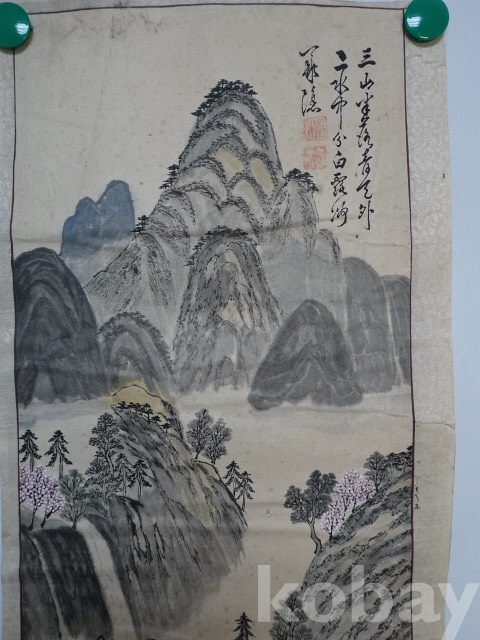 三山半落青天外
二水中分白鷺洲
隱
kobay